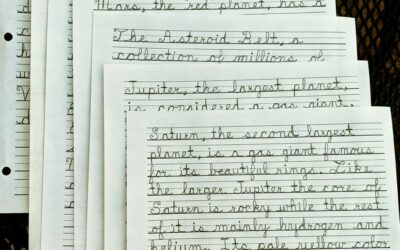 Mars, the red planet, has a
The Asteroid Belt, a
collection of millions of
Jupiter, the largest planet,
is considered a gas giant.
Saturn, the second largest
planet, is a gas giant famous
for its beautiful rings. Like
the larger Jupiter the core of
Saturn is rocky while the rest
of it is mainly hydrogen and
helium. Its pale yellow color